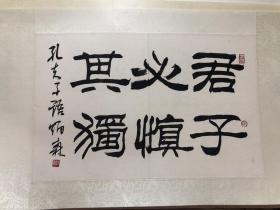 君子
必慎
其獨
孔夫子語炳森